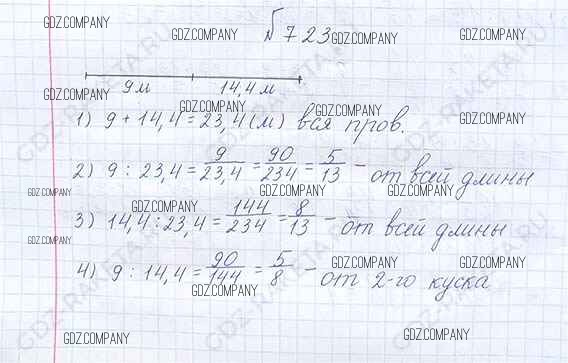 № 723
GDZ.COMPANY GDZ.COMPANY GDZ.COMPANY GDZ.COMPANY
9м 14,4м
GDZ.COMPANY
GDZ.COMPANY GDZ.COMPANY GDZ.COMPANY
1) 9 + 14,4 = 23,4 (м) вся пров.
2) 9 : 23,4 = 9/23,4 = 90/234 = 5/13 - от всей длины
GDZ.COMPANY GDZ.COMPANY GDZ.COMPANY
GDZ.COMPANY
3) 14,4 : 23,4 = 144/234 = 8/13 - от всей длины
GDZ.COMPANY
4) 9 : 14,4 = 90/144 = 5/8 - от 2-го куска
GDZ.COMPANY GDZ.COMPANY
GDZ.COMPANY
GDZ.COMPANY GDZ.COMPANY
GDZ-RAKETA.RU